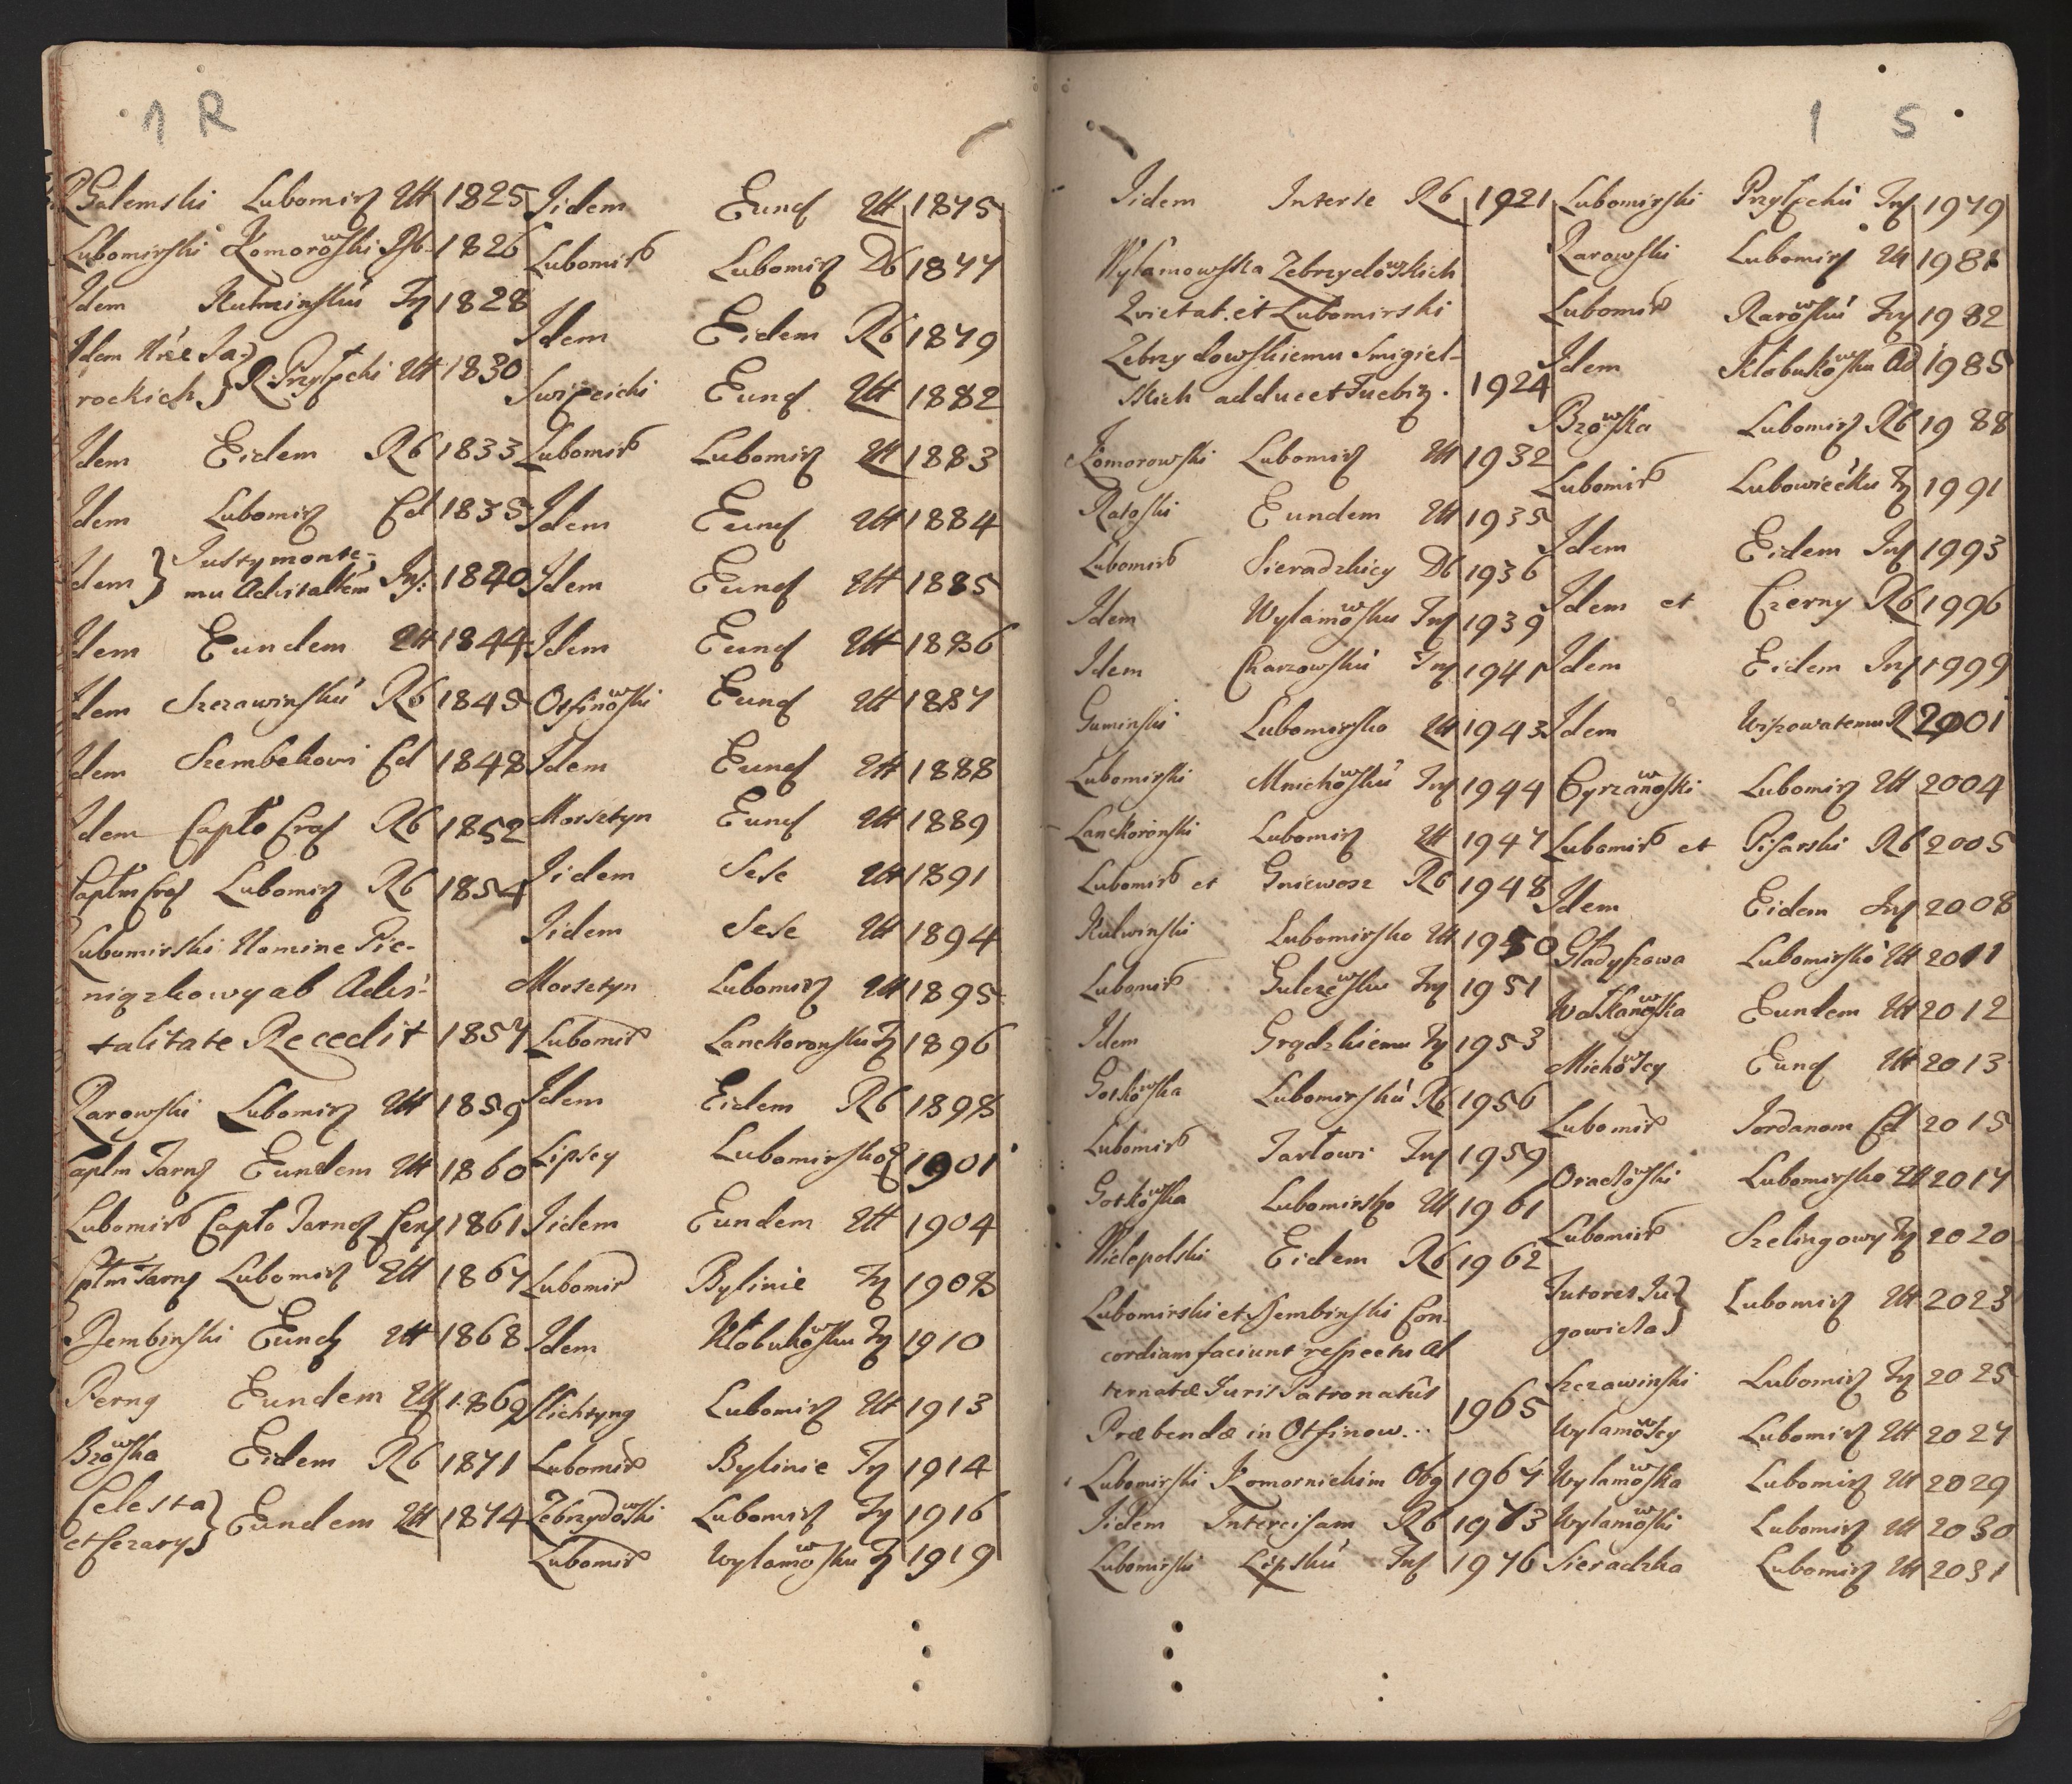 1 R
Galemski Lubomirs Utt 1825
Lubomirski Komorowski Rb 1826
Idem Kutminsku Ins 1828
Idem Nice Sa-
rockich R. Przyłęcki Utt 1830
Idem Eidem Rb 1833
Idem Lubomirs Ed 1835
Idem Justymonte-
mu Advitalitem Ins: 1840
Idem Eundem Utt 1844
Idem Szczawinsku Rb 1845
Idem Szembekowi Ed 1848
Idem Capto Crac Rb 1852
Captm Crac Lubomirs Rb 1854
Lubomirski Nomine Pie-
niązkowy ab Advi-
talitate Recedit 1857
Rarowski Lubomirs Utt 1859
Captm Tarns Eundem Utt 1860
Lubomirs Capto Tarnos Cens 1861
Cptm Tarns Lubomirs Utt 1867
Dembinski Eund Utt 1868
Perng Eundem Utt 1869
Bzowska Eidem Rb 1871
Celesta
et Cezarys Eundem Utt 1874
Iidem Eund Utt 1875
Lubomirs Lubomirs Db 1877
Idem Eidem Rb 1879
Swięcicki Eund Utt 1882
Lubomirs Lubomirs Utt 1883
Idem Eund Utt 1884
Idem Eund Utt 1885
Idem Eund Utt 1886
Otfinowski Eund Utt 1887
Idem Eund Utt 1888
Morsztyn Eund Utt 1889
Iidem Sese Utt 1891
Iidem Sese Utt 1894
Morsztyn Lubomirs Utt 1895
Lubomirs Lanckoronsku Ins 1896
Idem Eidem Rb 1898
Lipscy Lubomirsko 1901
Iidem Eundem Utt 1904
Lubomirs Bylinie Ins 1908
Idem Kłobukowsku Ins 1910
Slichtyng Lubomirs Utt 1913
Lubomirs Bylinie Ins 1914
Zebrzydowski Lubomirs Ins 1916
Lubomirs Wylamowsku Ins 1919
1 S
Iidem Interse Rb 1921
Wylamowska Zebrzydowskich
Qvietat. et Lubomirski
Zebrzydowskiemu Smigiel-
skich adducet Tuebiz. 1924
Komorowski Lubomirs Utt 1932
Ratoski Eundem Utt 1935
Lubomirs Sieradzkicy Db 1936
Idem Wylamowsku Ins 1939
Idem Charzowsku Ins 1941
Guminski Lubomirsko Utt 1943
Lubomirski Mnichowsku Ins 1944
Lanckoronski Lubomirs Utt 1947
Lubomirs et Gniewosz Rb 1948
Kulwinski Lubomirsko Utt 1950
Lubomirs Gulczewsku Ins 1951
Idem Grądzkiemu Ins 1953
Gotkowska Lubomirsku Rb 1956
Lubomirs Tarłowi Ins 1959
Gotkowska Lubomirsko Utt 1961
Wielopolski Eidem Rb 1962
Lubomirski et Dembinski Con-
cordiam faciunt respectu al
ternatæ Juris Patronatûs
Præbendæ in Otfinow... 1965
Lubomirski Komornickim Obg 1967
Iidem Intercisam Rb 1973
Lubomirski Lipsku Ins 1976
Lubomirski Przyłęcku Ins 1979
Rarowski Lubomirs Utt 1981
Lubomirs Rarowsku Ins 1982
Idem Kłobukowsku Ad 1985
Bzowska Lubomirs Rb 1988
Lubomirs Lubowiecku Ins 1991
Idem Eidem Ins 1993
Idem et Czerny Rb 1996
Idem Eidem Ins 1999
Idem Wizowatemu R 2001
Cyrzanowski Lubomirs Utt 2004
Lubomirs et Pisarski Rb 2005
Idem Eidem Ins 2008
Gładyszowa Lubomirsko Utt 2011
Walkanowska Eundem Utt 2012
Michowscy Eund Utt 2013
Lubomirs Jordanom Ed 2015
Oraczowski Lubomirsko Utt 2017
Lubomirs Szelingowy Ins 2020
Tutores Ju-
gowicta Lubomirs Utt 2023
Szczawinski Lubomirs Ins 2025
Wylamowscy Lubomirs Utt 2027
Wylamowska Lubomirs Utt 2029
Wylamowski Lubomirs Utt 2030
Sieradzka Lubomirs Utt 2031